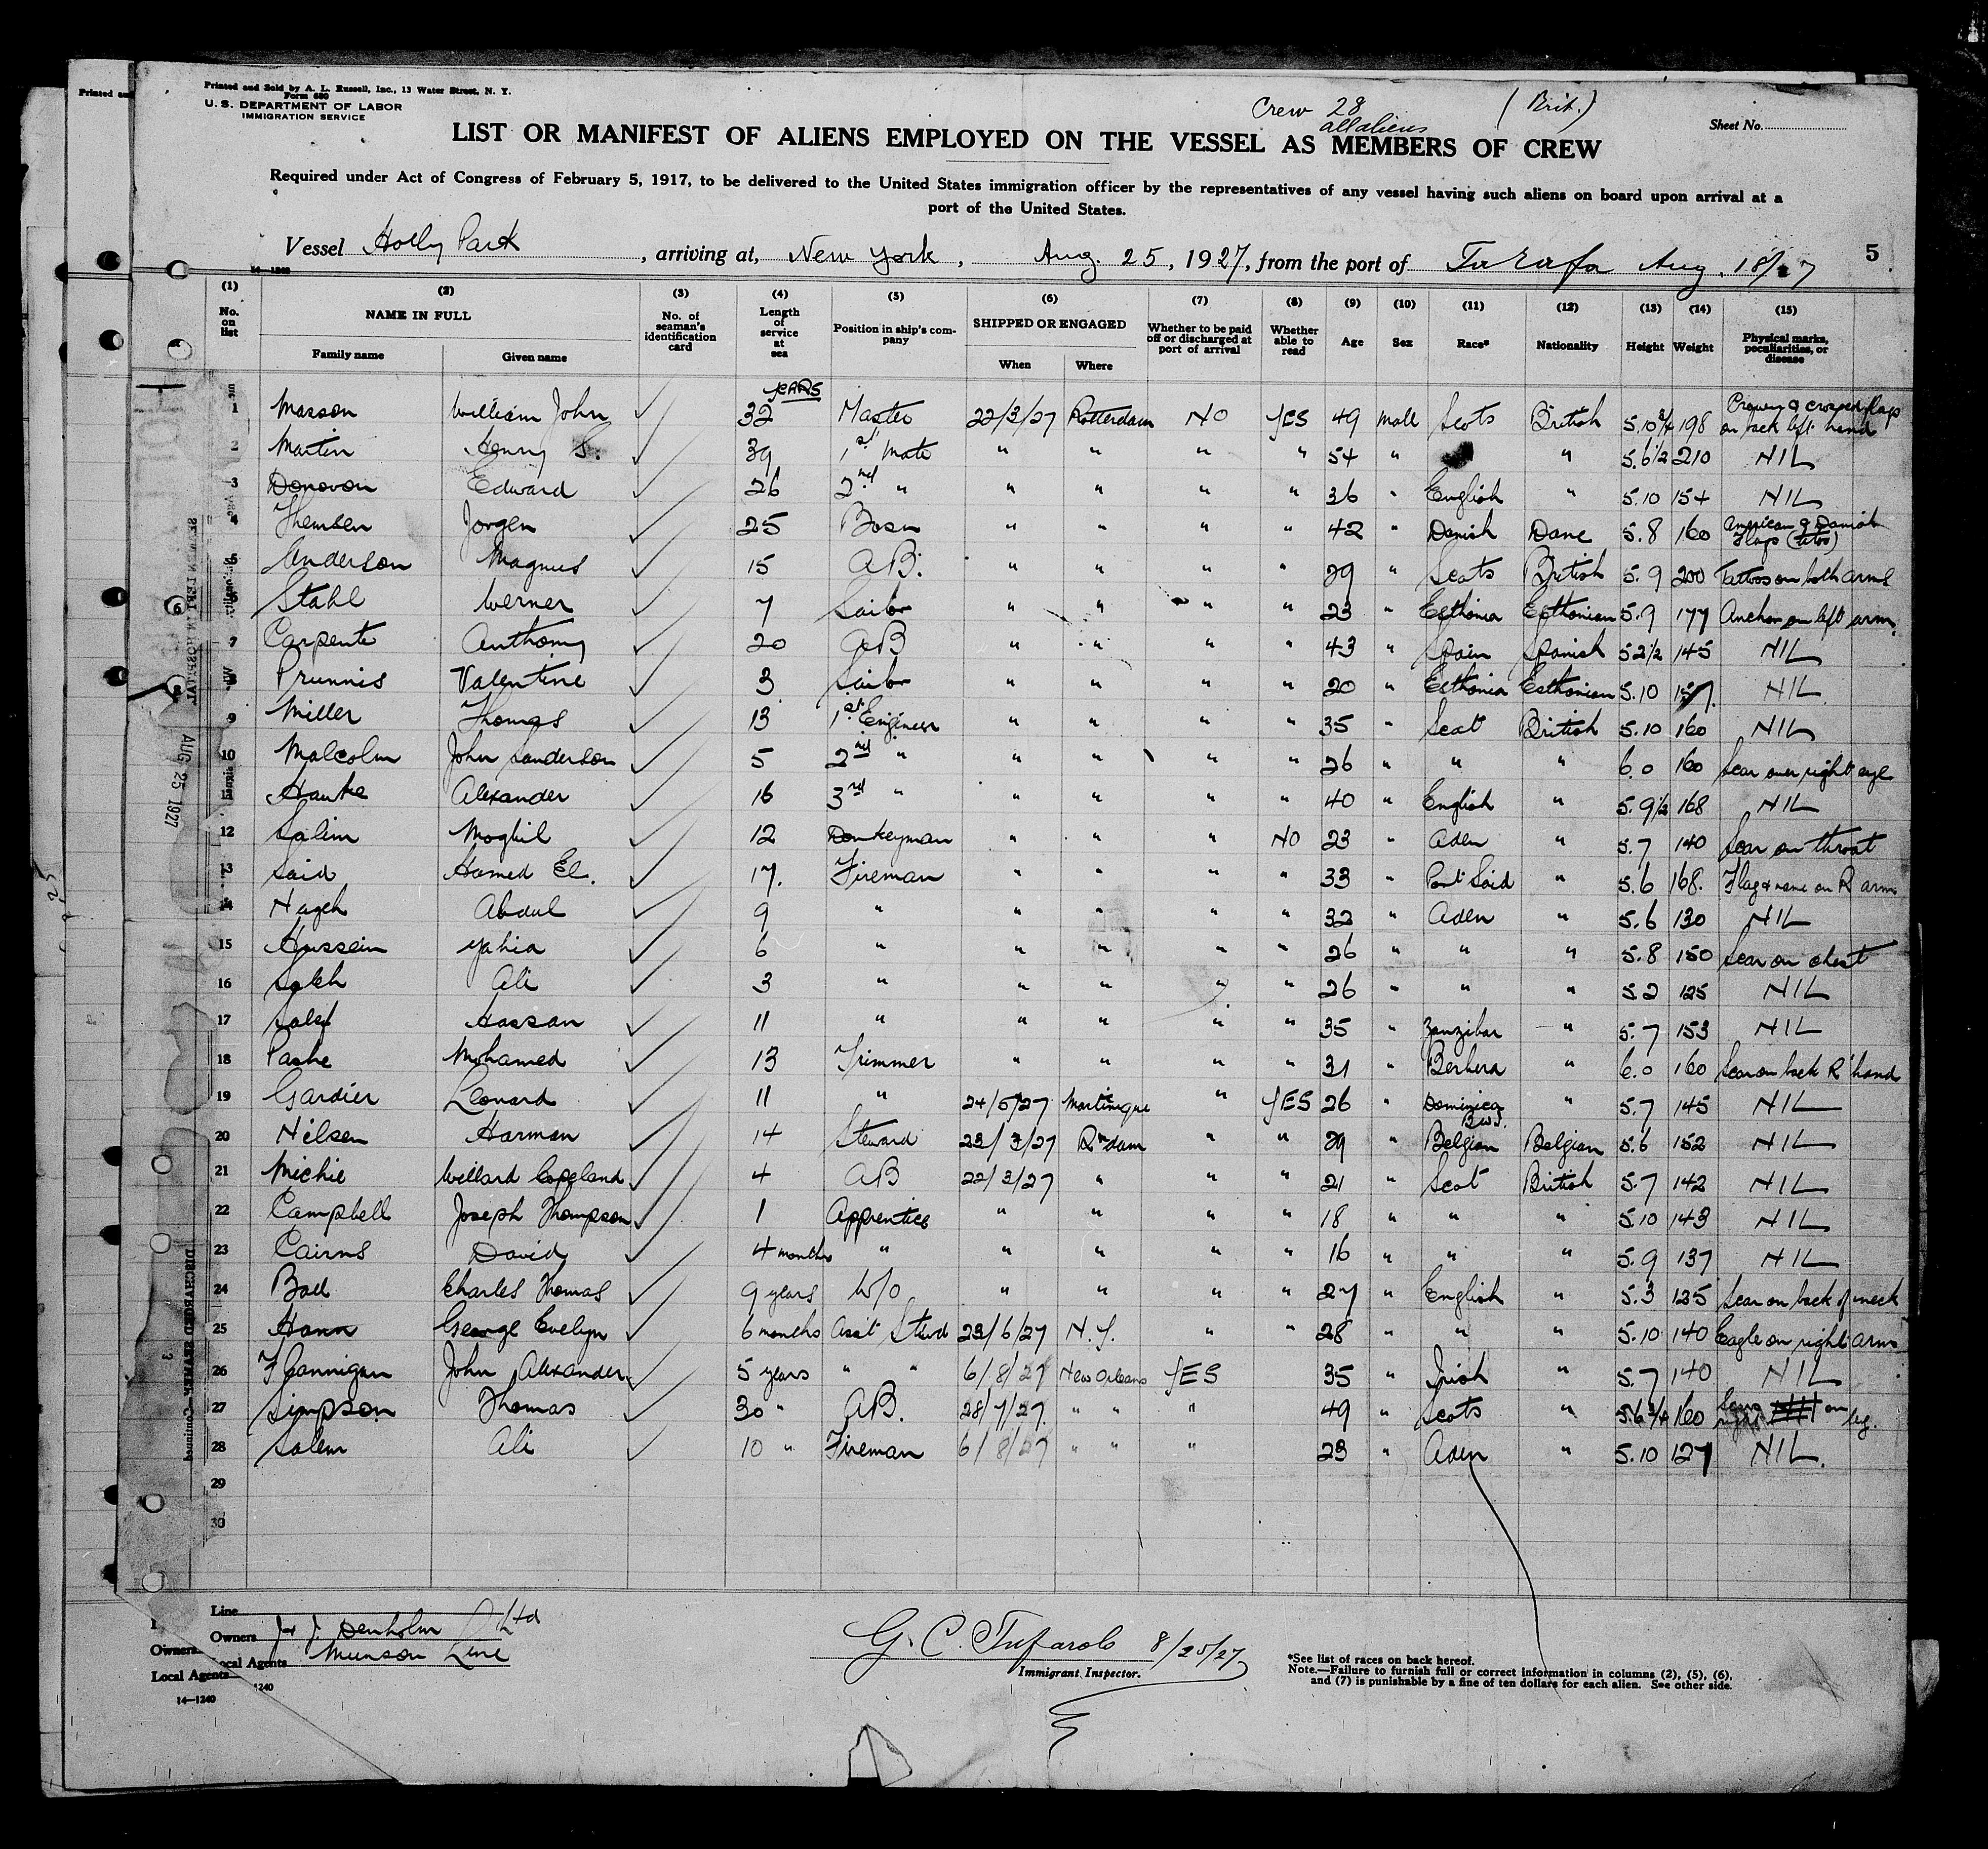 Printed and Sold by A. L. Russell, Inc., 13 Water Street, N. Y.
Form 680
U. S. DEPARTMENT OF LABOR
IMMIGRATION SERVICE
Crew 28 (Brit.)
all aliens
Sheet No.
LIST OR MANIFEST OF ALIENS EMPLOYED ON THE VESSEL AS MEMBERS OF CREW
Required under Act of Congress of February 5, 1917, to be delivered to the United States immigration officer by the representatives of any vessel having such aliens on board upon arrival at a
port of the United States.
Vessel Holly Park, arriving at, New York, Aug. 25, 1927, from the port of Tarafa Aug. 18/27 5
(1) (2) (3) (4) (5) (6) (7) (8) (9) (10) (11) (12) (13) (14) (15)
No. on list NAME IN FULL Family name Given name No. of seaman's identification card Length of service at sea Position in ship's company SHIPPED OR ENGAGED When Where Whether to be paid off or discharged at port of arrival Whether able to read Age Sex Race* Nationality Height Weight Physical marks, peculiarities, or disease
YEARS
1 Masson William John 32 Master 22/3/27 Rotterdam NO YES 49 Male Scots British 5.10 3/4 198 Crown & crossed flags on back left hand
2 Martin Henry G. 39 1st Mate " " " " 54 " " 5.6 1/2 210 NIL
3 Donovon Edward 26 2nd " " " " " 36 " English " 5.10 154 NIL
4 Themsen Jorgen 25 Bosn " " " " 42 " Danish Dane 5.8 160 American & Danish Flags (tatoo)
5 Anderson Magnus 15 A.B. " " " " 29 " Scots British 5.9 200 Tattoos on both arms
6 Stahl Werner 7 Sailor " " " " 23 " Esthonia Esthonian 5.9 177 Anchor on left arm.
7 Carpente Anthony 20 AB " " " " 43 " Spain Spanish 5 2 1/2 145 NIL
8 Prunnis Valentine 3 Sailor " " " " 20 " Esthonia Esthonian 5.10 157. NIL
9 Miller Thomas 13 1st Engineer " " " " 35 " Scot British 5.10 160 NIL
10 Malcolm John Sanderson 5 2nd " " " " " 26 " " " 6.0 160 Scar over right eye
11 Hawke Alexander 16 3rd " " " " " 40 " English " 5.9 1/2 168 NIL
12 Salim Moghil 12 Donkeyman " " " NO 23 " Aden " 5.7 140 Scar on throat
13 Said Hamed El. 17. Fireman " " " " 33 " Port Said " 5.6 168. Flag & name on R arm
14 Nageh Abdul 9 " " " " " 32 " Aden " 5.6 130 NIL
15 Hussein Yahia 6 " " " " " 26 " " " 5.8 150 Scar on chest
16 Saleh Ali 3 " " " " " 26 " " " 5.2 125 NIL
17 Hassan 11 " " " " " 35 " Zanzibar " 5.7 153 NIL
18 Pashe Mohamed 13 Trimmer " " " " 31 " Berbera " 6.0 160 Scar on back R hand
19 Gardier Leonard 11 " 24/5/27 Martinique " YES 26 " Dominica B.W.I. " 5.7 145 NIL
20 Nilsen Harman 14 Steward 23/3/27 R'dam " " 29 " Belgian Belgian 5.6 152 NIL
21 Michie Willard Copeland 4 AB 22/3/27 " " " 21 " Scot British 5.7 142 NIL
22 Campbell Joseph Thompson 1 Apprentice " " " " 18 " " " 5.10 143 NIL
23 Cairns David 4 months " " " " " 16 " " " 5.9 137 NIL
24 Charles Thomas 9 years W/O " " " " 27 " English " 5.3 125 Scar on back of neck
25 Hann George Evelyn 6 months Asst Stewd 23/6/27 N.Y. " " 28 " " " 5.10 140 Eagle on right arm
26 Flannigan John Alexander 5 years " " 6/8/27 New Orleans YES 35 " Irish " 5.7 140 NIL
27 Simpson Thomas 30 " AB. 28/7/27. " " " 49 " Scots " 5.6 3/4 160 Scar right on leg.
28 Salem Ali 10 " Fireman 6/8/27 " " " 23 " Aden " 5.10 127 NIL.
29
30
AUG 25 1927
DISCHARGED SEAMEN—Continued
Line
Owners J & J. Denholm Ltd
Local Agents Munson Line
Owners
Local Agents
14—1240
G. C. Tufarolo 8/25/27
Immigrant Inspector.
*See list of races on back hereof.
Note.—Failure to furnish full or correct information in columns (2), (5), (6),
and (7) is punishable by a fine of ten dollars for each alien. See other side.